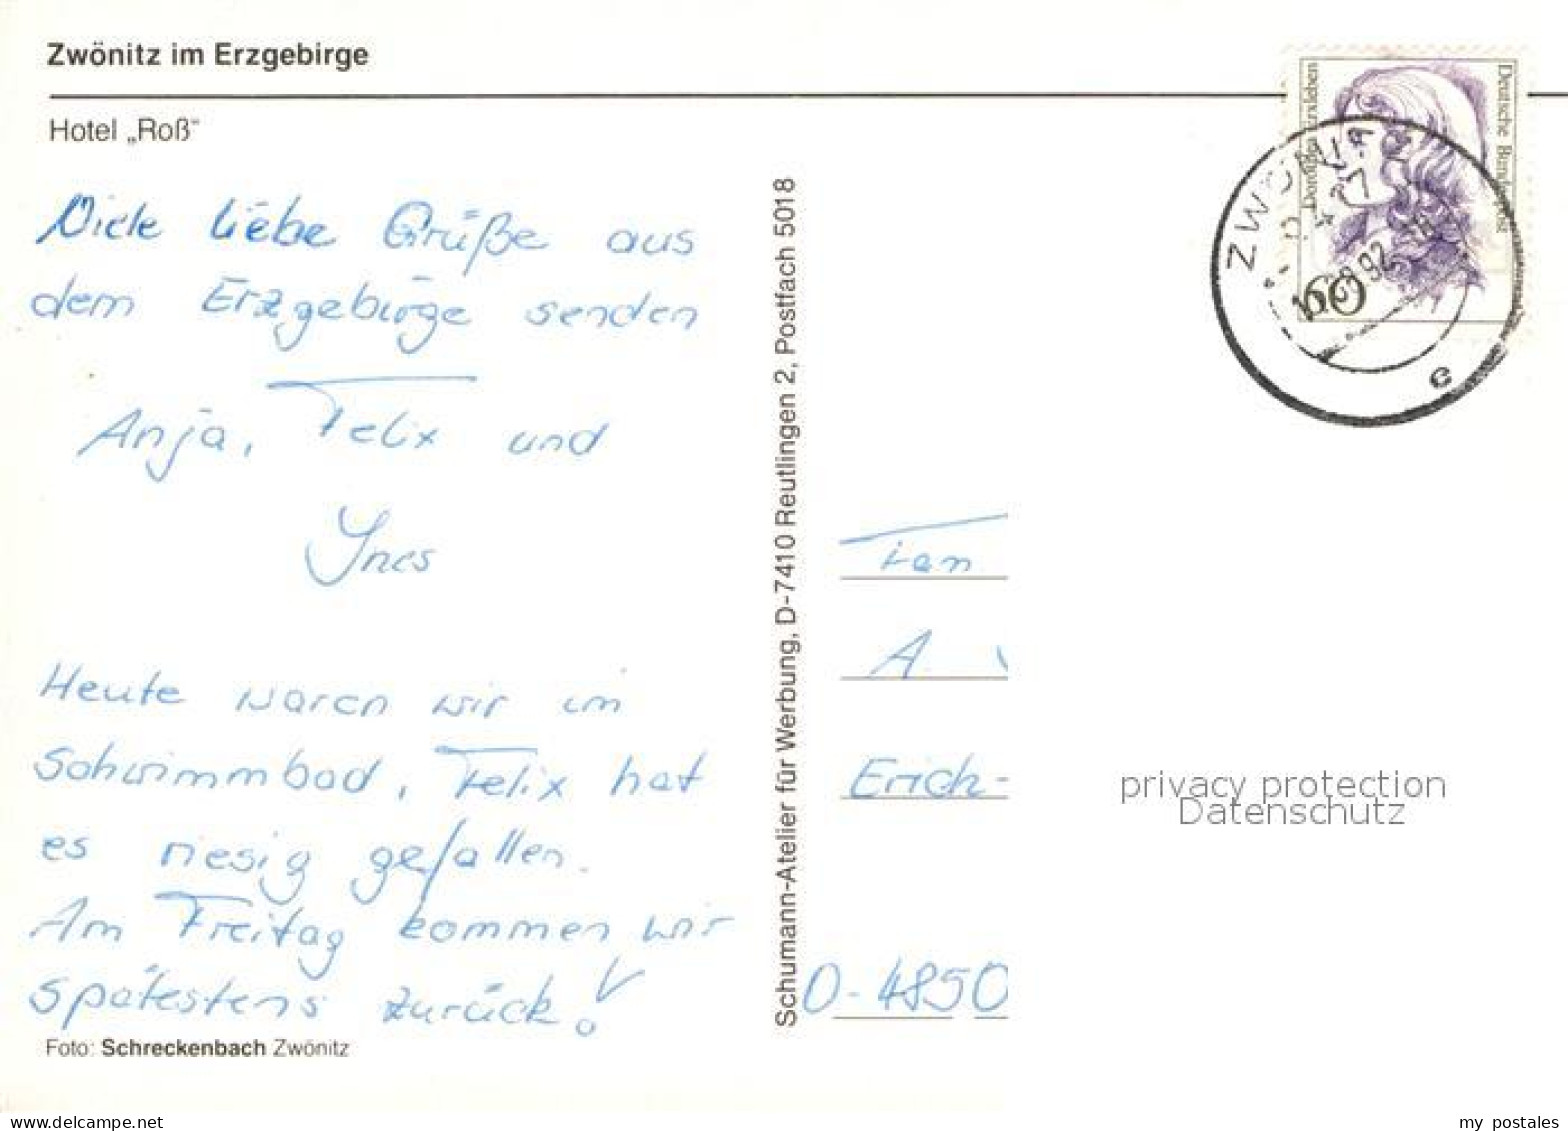 Zwönitz im Erzgebirge
Hotel „Roß“
Viele liebe Grüße aus
dem Erzgebirge senden
Anja, Felix und
Ynes
Heute waren wir im
Schwimmbad, Felix hat
es riesig gefallen.
Am Freitag kommen wir
spätestens zurück!
Foto: Schreckenbach Zwönitz
Schumann-Atelier für Werbung, D-7410 Reutlingen 2, Postfach 5018
Deutsche Bundespost
Dorothea Erxleben
60
92
c
Fam
A
Erich-
D-4850
privacy protection
Datenschutz
www.delcampe.net
my_postales